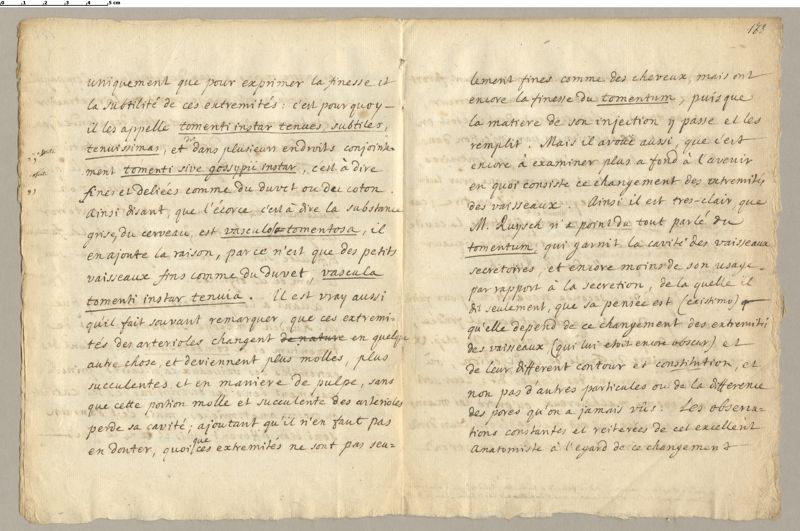 0 1 2 3 4 5 cm
183
uniquement que pour exprimer la finesse et
la subtilité de ces extremités: c'est pourquoy
il les appelle tomenti instar tenues, subtiles,
tenuissimas, et de dans plusieurs endroits conjointe-
ment tomenti sive gossypii instar, c'est à dire
fines et deliées comme du duvet ou du coton.
Ainsi disant, que l'écorce, c'est à dire la substance
grise, du cerveau est vasculoso tomentosa, il
en ajoute la raison, par ce n'est que des petits
vaisseaux fins comme du duvet, vascula
tomenti instar tenuia. Il est vray aussi
qu'il fait souvant remarquer, que ces extremi-
tés des arterioles changent de nature en quelque
autre chose, et deviennent plus molles, plus
succulentes, et en maniere de pulpe, sans
que cette portion molle et succulente des arterioles
perde sa cavité; ajoutant qu'il n'en faut pas
en douter, quoique ces extremités ne sont pas seu-
lement fines comme des cheveux, mais ont
encore la finesse du tomentum, puisque
la matiere de son injection y passe et les
remplit. Mais il avoüe aussi, que c'est
encore à examiner plus a fond à l'avenir
en quoi consiste ce changement des extremités
des vaisseaux. Ainsi il est tres-clair que
M. Ruysch n'a point du tout parlé du
tomentum, qui garnit la cavité des vaisseaux
secretoires, et encore moins de son usage
par rapport à la secretion, de la quelle il
dit seulement, que sa pensée est (existimo)
qu'elle depend de ce changement des extremités
des vaisseaux (qui lui etoit encore obscur) et
de leur different contour et constitution, et
non pas d'autres particules ou de la difference
des pores qu'on a jamais vûs. Les observa-
tions constantes et reiterées de cet excellent
Anatomiste à l'egard de ce changement